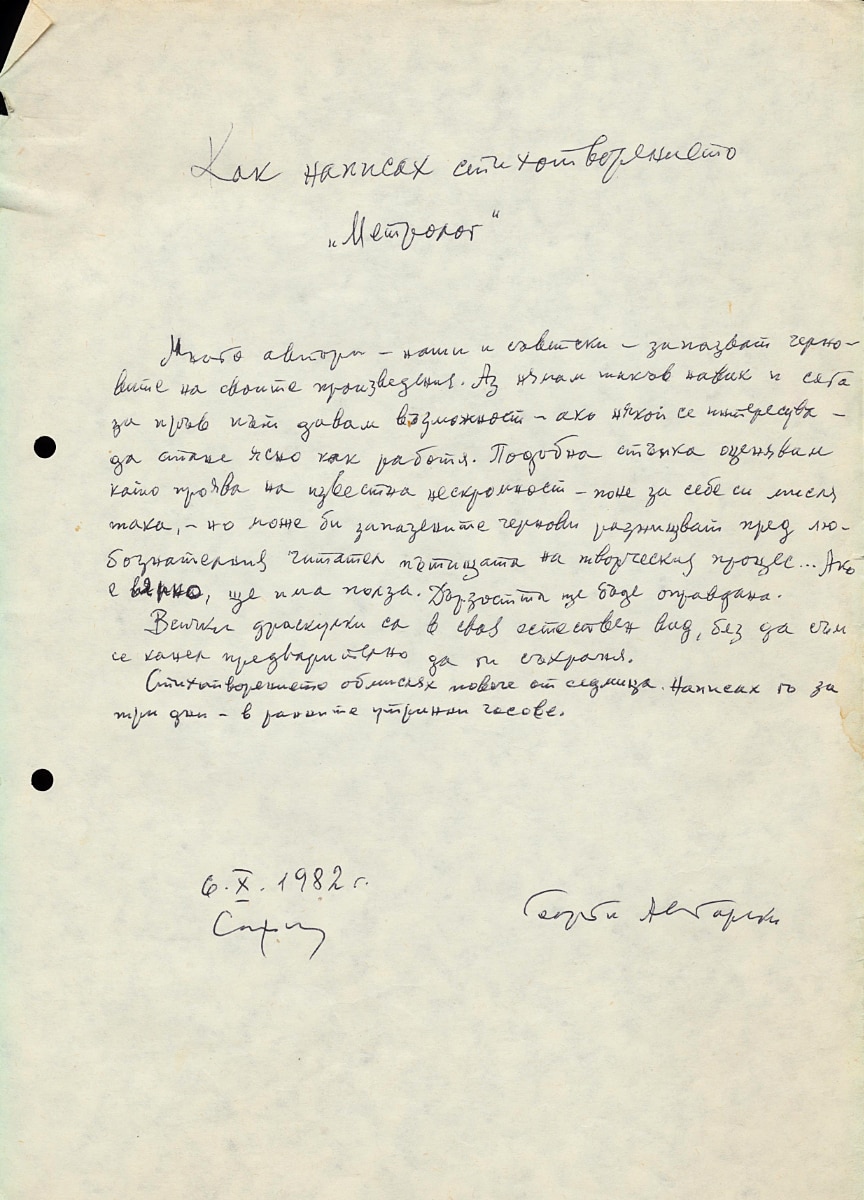 Как написах стихотворението
„Метролог“
Много автори – наши и съветски – запазват черно-
вите на своите произведения. Аз нямам такъв навик и сега
за пръв път давам възможност – ако някой се интересува –
да стане ясно как работя. Подобна стъпка оценявам
като проява на известна нескромност – поне за себе си мисля
така, – но може би запазените чернови разнищват пред лю-
бознателния читател пътищата на творческия процес... Ако
е вярно, ще има полза. Дързостта ще бъде оправдана.
Всички драскулки са в своя естествен вид, без да съм
се канел предварително да ги съхраня.
Стихотворението обмислях повече от седмица. Написах го за
три дни – в ранните утринни часове.
6.X.1982 г.
София
Георги